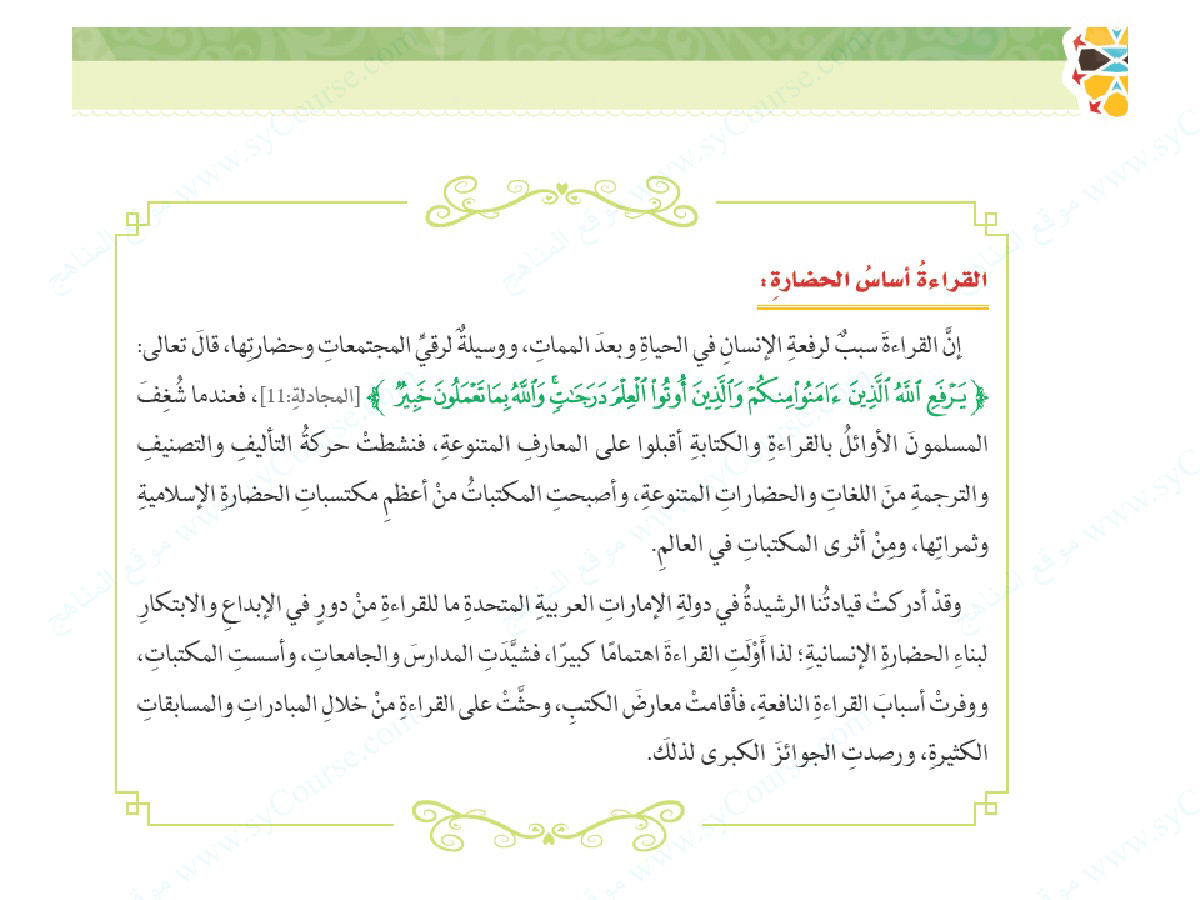 القراءةُ أساسُ الحضارةِ:
إنَّ القراءةَ سببٌ لرفعةِ الإنسانِ في الحياةِ وبعدَ المماتِ، ووسيلةٌ لرقيِّ المجتمعاتِ وحضارتِها، قالَ تعالى:
﴿يَرْفَعِ ٱللَّهُ ٱلَّذِينَ ءَامَنُوا۟ مِنكُمْ وَٱلَّذِينَ أُوتُوا۟ ٱلْعِلْمَ دَرَجَـٰتٍ ۚ وَٱللَّهُ بِمَا تَعْمَلُونَ خَبِيرٌ﴾ [المجادلةِ:11]، فعندما شُغِفَ
المسلمونَ الأوائلُ بالقراءةِ والكتابةِ أقبلوا على المعارفِ المتنوعةِ، فنشطتْ حركةُ التأليفِ والتصنيفِ
والترجمةِ منَ اللغاتِ والحضاراتِ المتنوعةِ، وأصبحتِ المكتباتُ منْ أعظمِ مكتسباتِ الحضارةِ الإسلاميةِ
وثمراتِها، ومِنْ أثرى المكتباتِ في العالمِ.
وقدْ أدركتْ قيادتُنا الرشيدةُ في دولةِ الإماراتِ العربيةِ المتحدةِ ما للقراءةِ منْ دورٍ في الإبداعِ والابتكارِ
لبناءِ الحضارةِ الإنسانيةِ؛ لذا أَوْلَتِ القراءةَ اهتمامًا كبيرًا، فشيَّدَتِ المدارسَ والجامعاتِ، وأسستِ المكتباتِ،
ووفرتْ أسبابَ القراءةِ النافعةِ، فأقامتْ معارضَ الكتبِ، وحثَّتْ على القراءةِ منْ خلالِ المبادراتِ والمسابقاتِ
الكثيرةِ، ورصدتِ الجوائزَ الكبرى لذلكَ.
موقع المناهج www.syCourse.com